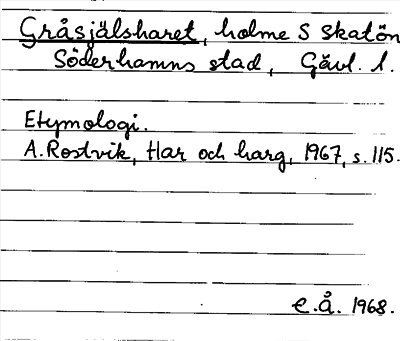 Gråsjälsharet, holme S Skatön
Söderhamns stad, Gävl. l.
Etymologi.
A. Rostvik, Har och harg, 1967, s. 115.
E.Å. 1968.